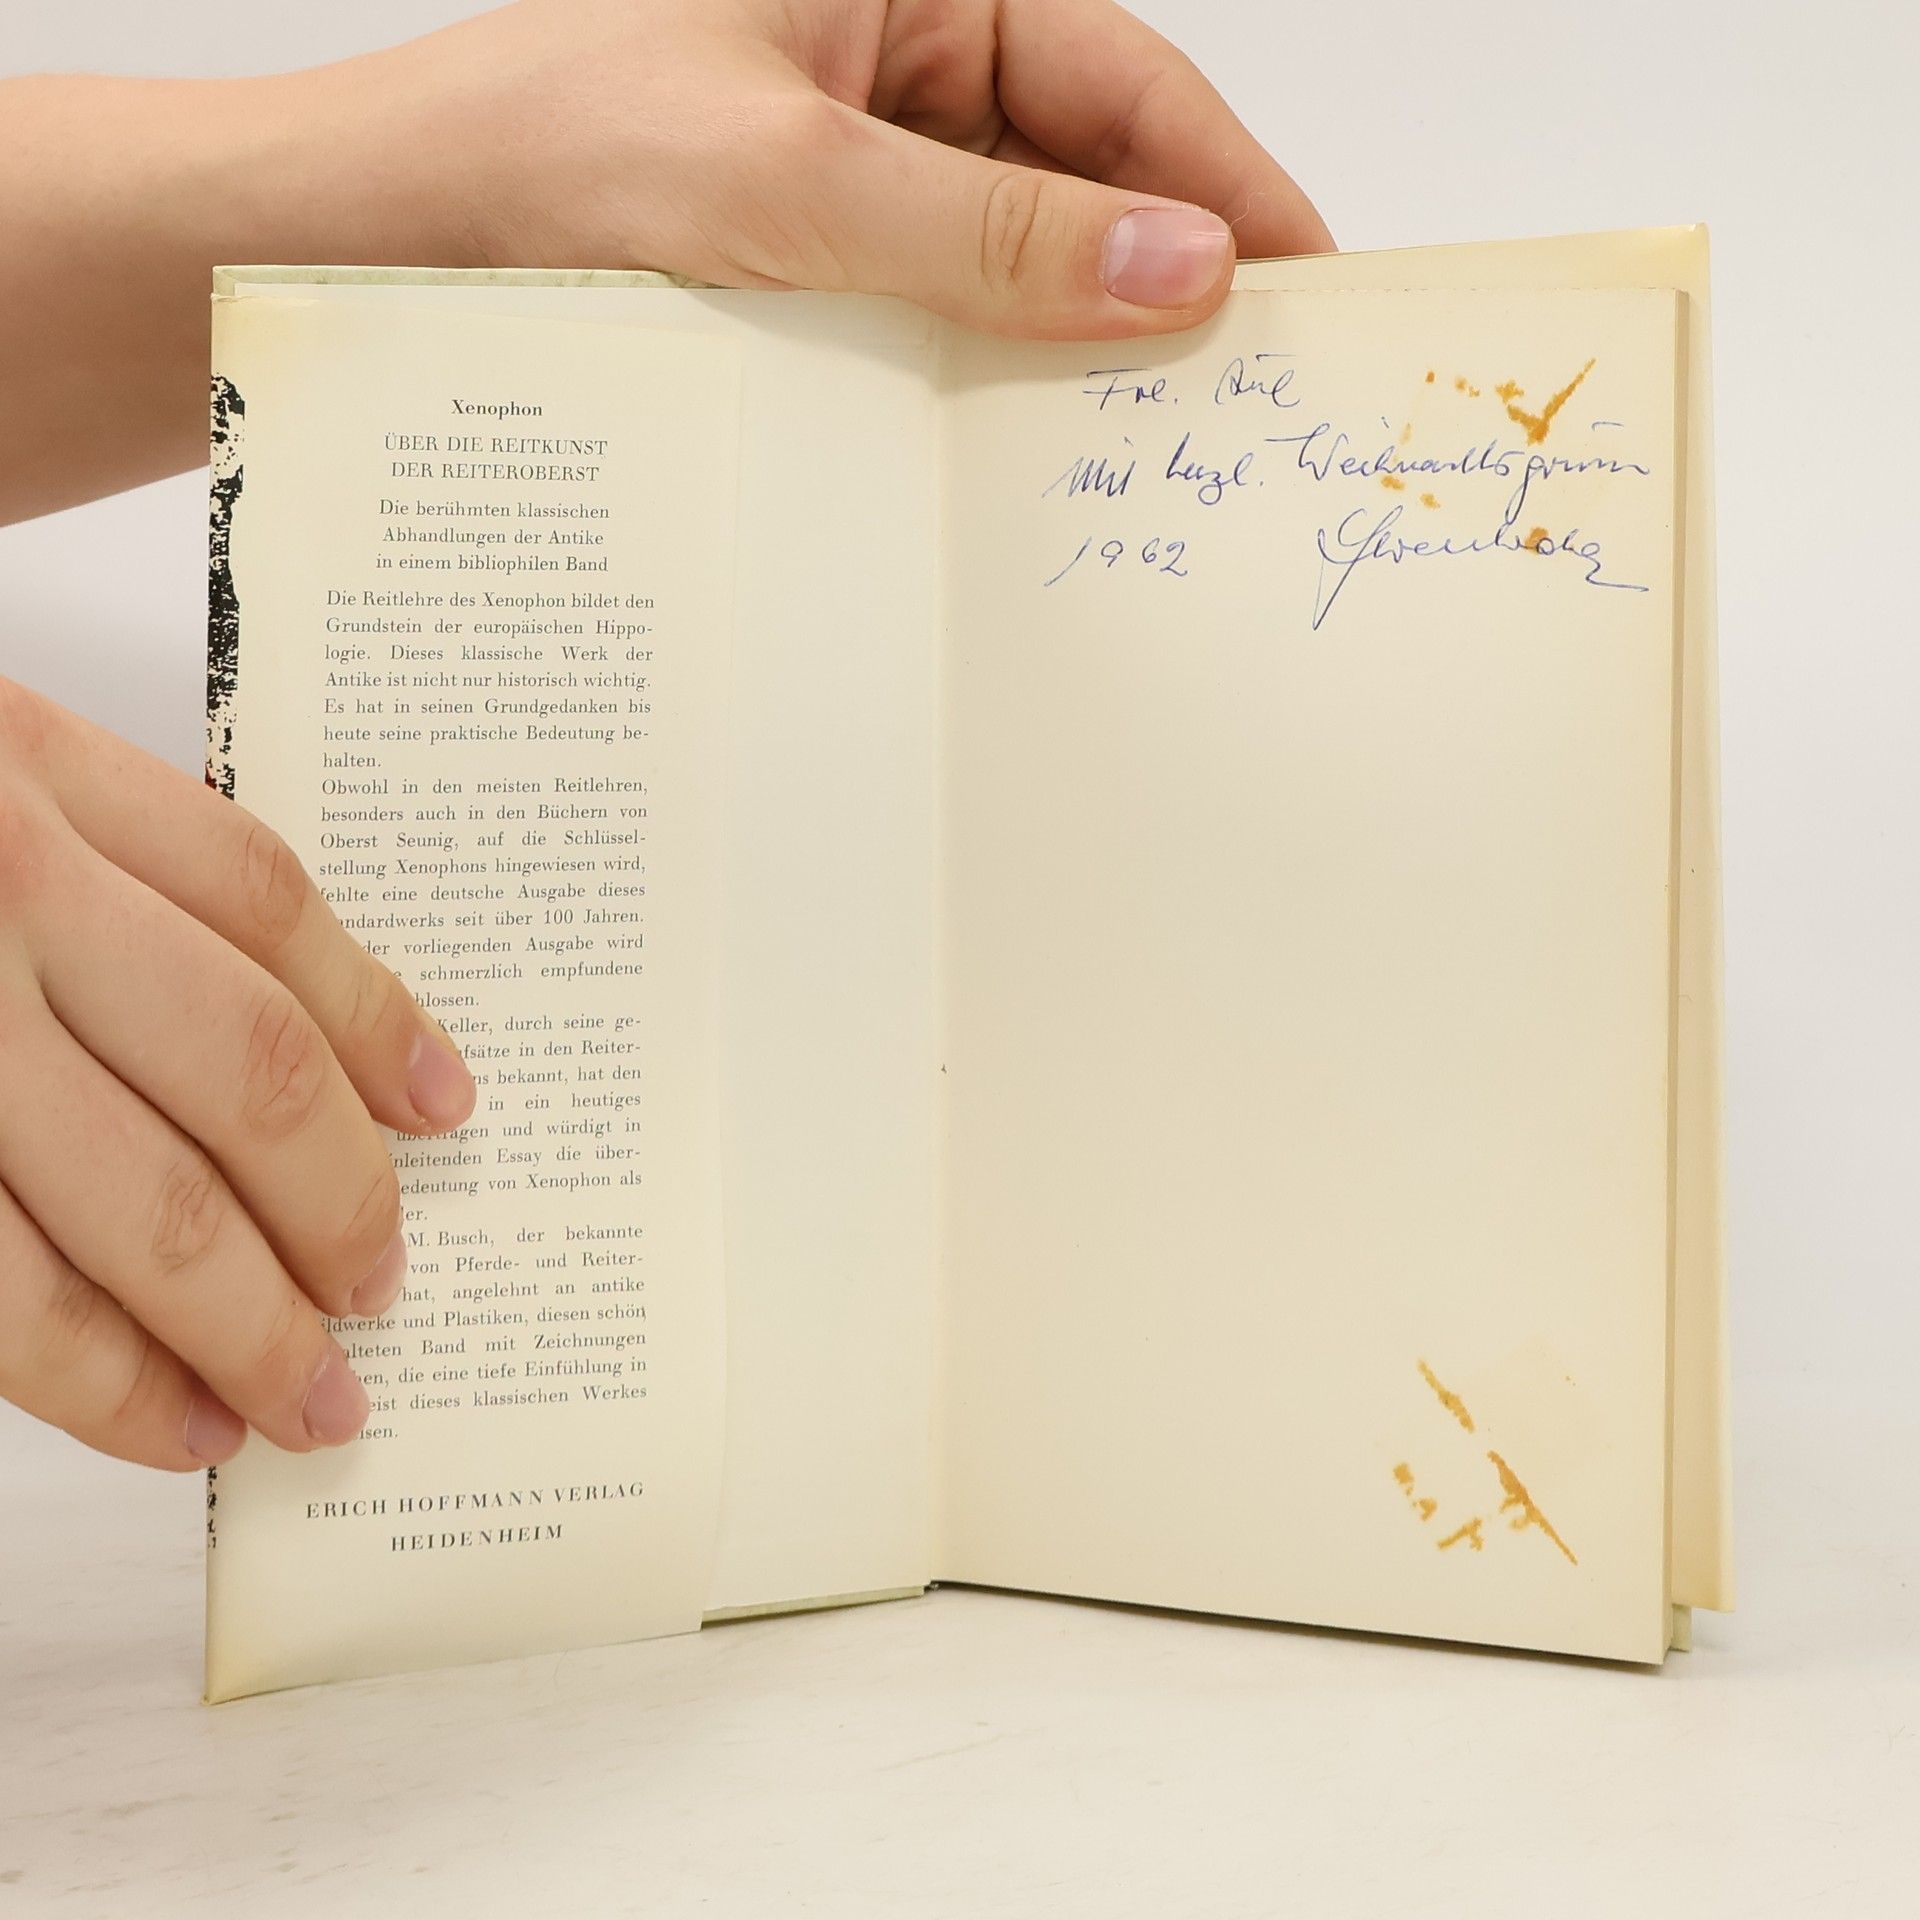 Xenophon
ÜBER DIE REITKUNST
DER REITEROBERST
Die berühmten klassischen
Abhandlungen der Antike
in einem bibliophilen Band
Die Reitlehre des Xenophon bildet den
Grundstein der europäischen Hippo-
logie. Dieses klassische Werk der
Antike ist nicht nur historisch wichtig.
Es hat in seinen Grundgedanken bis
heute seine praktische Bedeutung be-
halten.
Obwohl in den meisten Reitlehren,
besonders auch in den Büchern von
Oberst Seunig, auf die Schlüssel-
stellung Xenophons hingewiesen wird,
fehlte eine deutsche Ausgabe dieses
andardwerks seit über 100 Jahren.
der vorliegenden Ausgabe wird
e schmerzlich empfundene
hlossen.
Keller, durch seine ge-
fsätze in den Reiter-
ns bekannt, hat den
in ein heutiges
übertragen und würdigt in
nleitenden Essay die über-
edeutung von Xenophon als
ler.
M. Busch, der bekannte
von Pferde- und Reiter-
hat, angelehnt an antike
ildwerke und Plastiken, diesen schön
alteten Band mit Zeichnungen
en, die eine tiefe Einfühlung in
eist dieses klassischen Werkes
isen.
ERICH HOFFMANN VERLAG
HEIDENHEIM
Frl.
Mit herzl. Weihnachtsgrüßen
1962